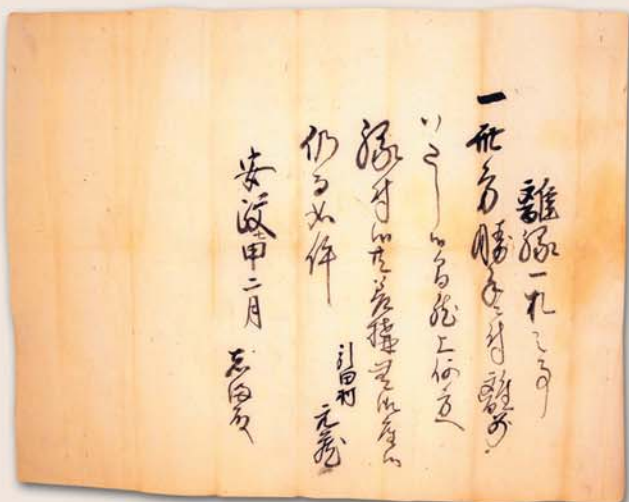 離縁一札之事
一此方勝手ニ付離別
いたし候然上何方
縁付候共差構無御座候
仍而如件
引田村 元蔵
安政七申二月